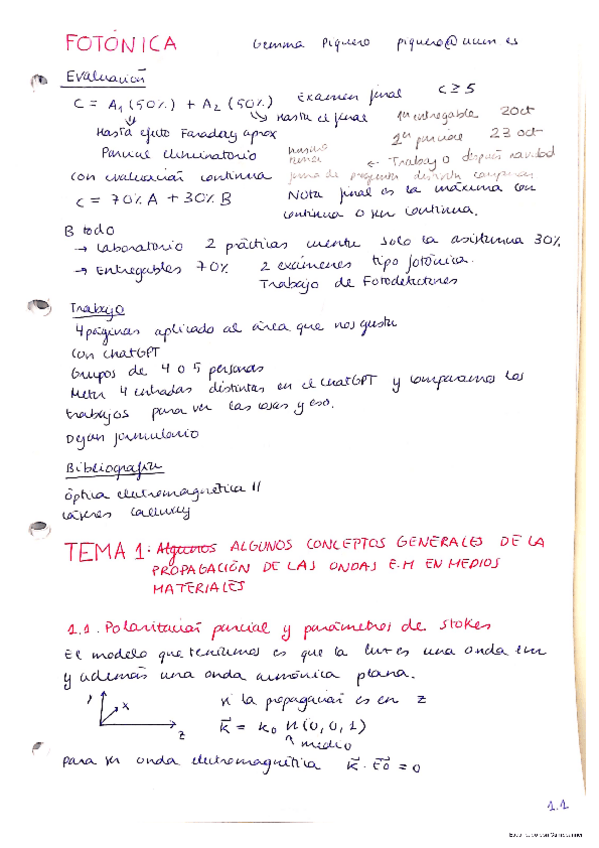 FOTÓNICA Gemma Piquero piquero@ucm.es
Evaluación
C = A₁ (50%) + A₂ (50%) Examen final C ≥ 5
Hasta efecto Faraday aprox Hasta el final 1er entregable 20 oct
Parcial eliminatorio 1er parcial 23 oct
← Trabajo después navidad
con evaluación continua
C = 70% A + 30% B Nota final es la máxima con
continua o sin continua.
B todo
→ Laboratorio 2 prácticas cuenta solo la asistencia 30%
→ Entregables 70% 2 exámenes tipo fotónica.
Trabajo de Fotodetectores
Trabajo
4 páginas aplicado al área que nos guste
con chatGPT
Grupos de 4 o 5 personas
Meter 4 entradas distintas en el chatGPT y comparamos los
trabajos para ver las cosas y eso.
Dejan formulario
Bibliografía
óptica electromagnética II
TEMA 1: Algunos ALGUNOS CONCEPTOS GENERALES DE LA
PROPAGACIÓN DE LAS ONDAS E.M EN MEDIOS
MATERIALES
1.1. Polarización parcial y parámetros de Stokes
El modelo que teníamos es que la luz es una onda em
y además una onda armónica plana.
si la propagación es en z
y x z
k⃗ = k₀ n (0, 0, 1)
medio
para ser onda electromagnética k⃗ · E⃗₀ = 0
1.1